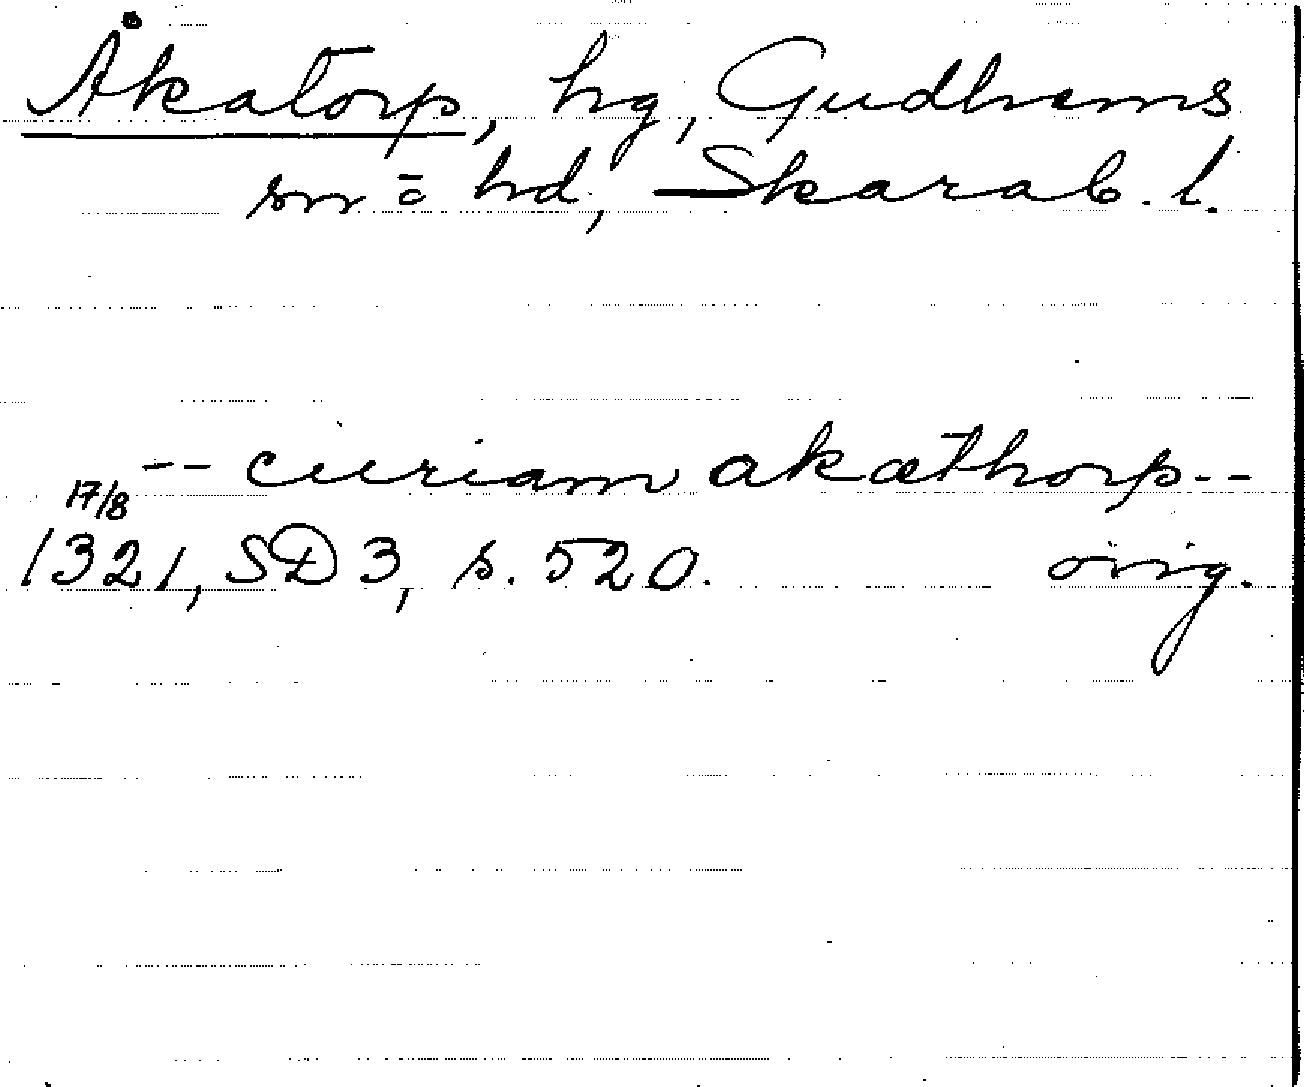 Åkatorp, hg, Gudhems
sn o hd, Skarab. l.
-- curiam akæthorp --
17/8
1321, SD 3, s. 520. orig.